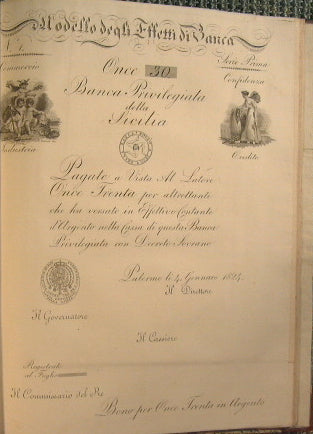 Modello degli Effetti di Banca
N. 1.
Serie Prima
Commercio
Once 30
Confidenza
Banca Privilegiata
della
Sicilia
Industria
Credito
Pagate a Vista Al Latore
Once Trenta per altrettante
che ha versate in Effettivo Contante
d'Argento nella Cassa di questa Banca
Privilegiata con Decreto Sovrano
Palermo le 4. Gennaro 1824.
Il Direttore
Il Governatore
Il Cassiere
Registrato
al Foglio
Il Commissario del Re
Bono per Once Trenta in Argento